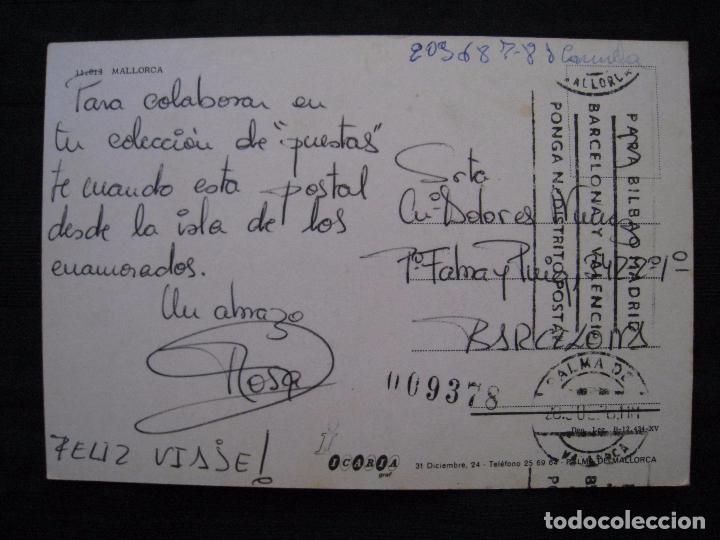 11.013 MALLORCA
Para colaborar en
tu colección de "puestas"
te cuando esta postal
desde la isla de los
enamorados.
Un abrazo
Rosa
FELIZ VIAJE!
Srta
Mª Dolores
Pº Fabra y Puig,
BARCELONA
PARA BILBAO MADRID
BARCELONA Y VALENCIA
PONGA N. DISTRITO POSTAL
009378
PALMA DE
MALLORCA
Dep. Leg. B-12.434-XV
ICARIA
graf
31 Diciembre, 24 - Teléfono 25 69 64 - PALMA DE MALLORCA
todocoleccion
todocoleccion.net